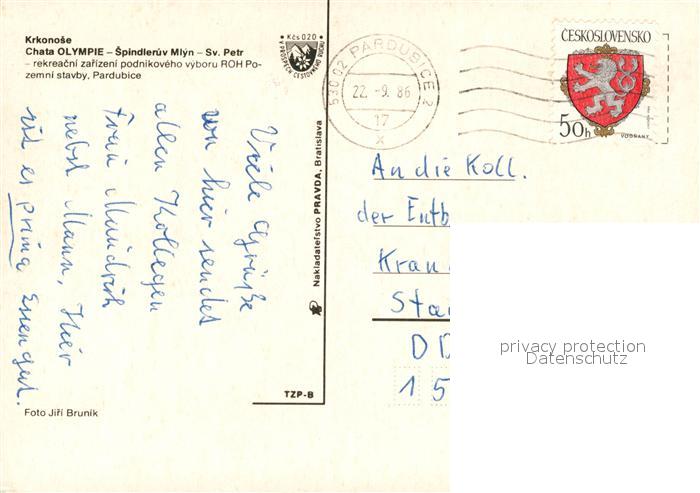 Krkonoše
Chata OLYMPIE – Špindlerův Mlýn – Sv. Petr
– rekreační zařízení podnikového výboru ROH Po-
zemní stavby, Pardubice
Kčs 0,20
VE PROSPĚCH CESTOVNÍHO RUCHU
530 02 PARDUBICE 2
22. -9. 86
17
x
ČESKOSLOVENSKO
50h
VODŇANY
Viele Grüße
von hier sendet
allen Kollegen
Frau
nebst Mann, Hier
ist es prima Essen gut.
Nakladatelství PRAVDA, Bratislava
An die Koll.
der Entb
Kran
Sta
DD
15
privacy protection
Datenschutz
TZP-B
Foto Jiří Bruník